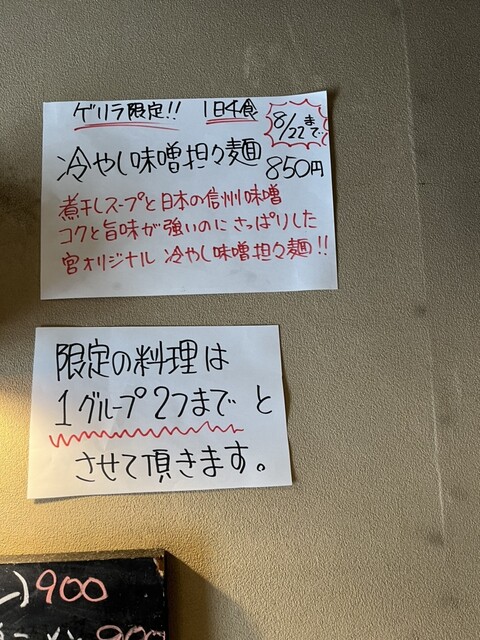 ゲリラ限定!! 1日4食
8/22まで
冷やし味噌担々麺 850円
煮干しスープと日本の信州味噌
コクと旨味が強いのにさっぱりした
宮オリジナル 冷やし味噌担々麺!!
限定の料理は
1グループ2つまでと
させて頂きます。
900
900